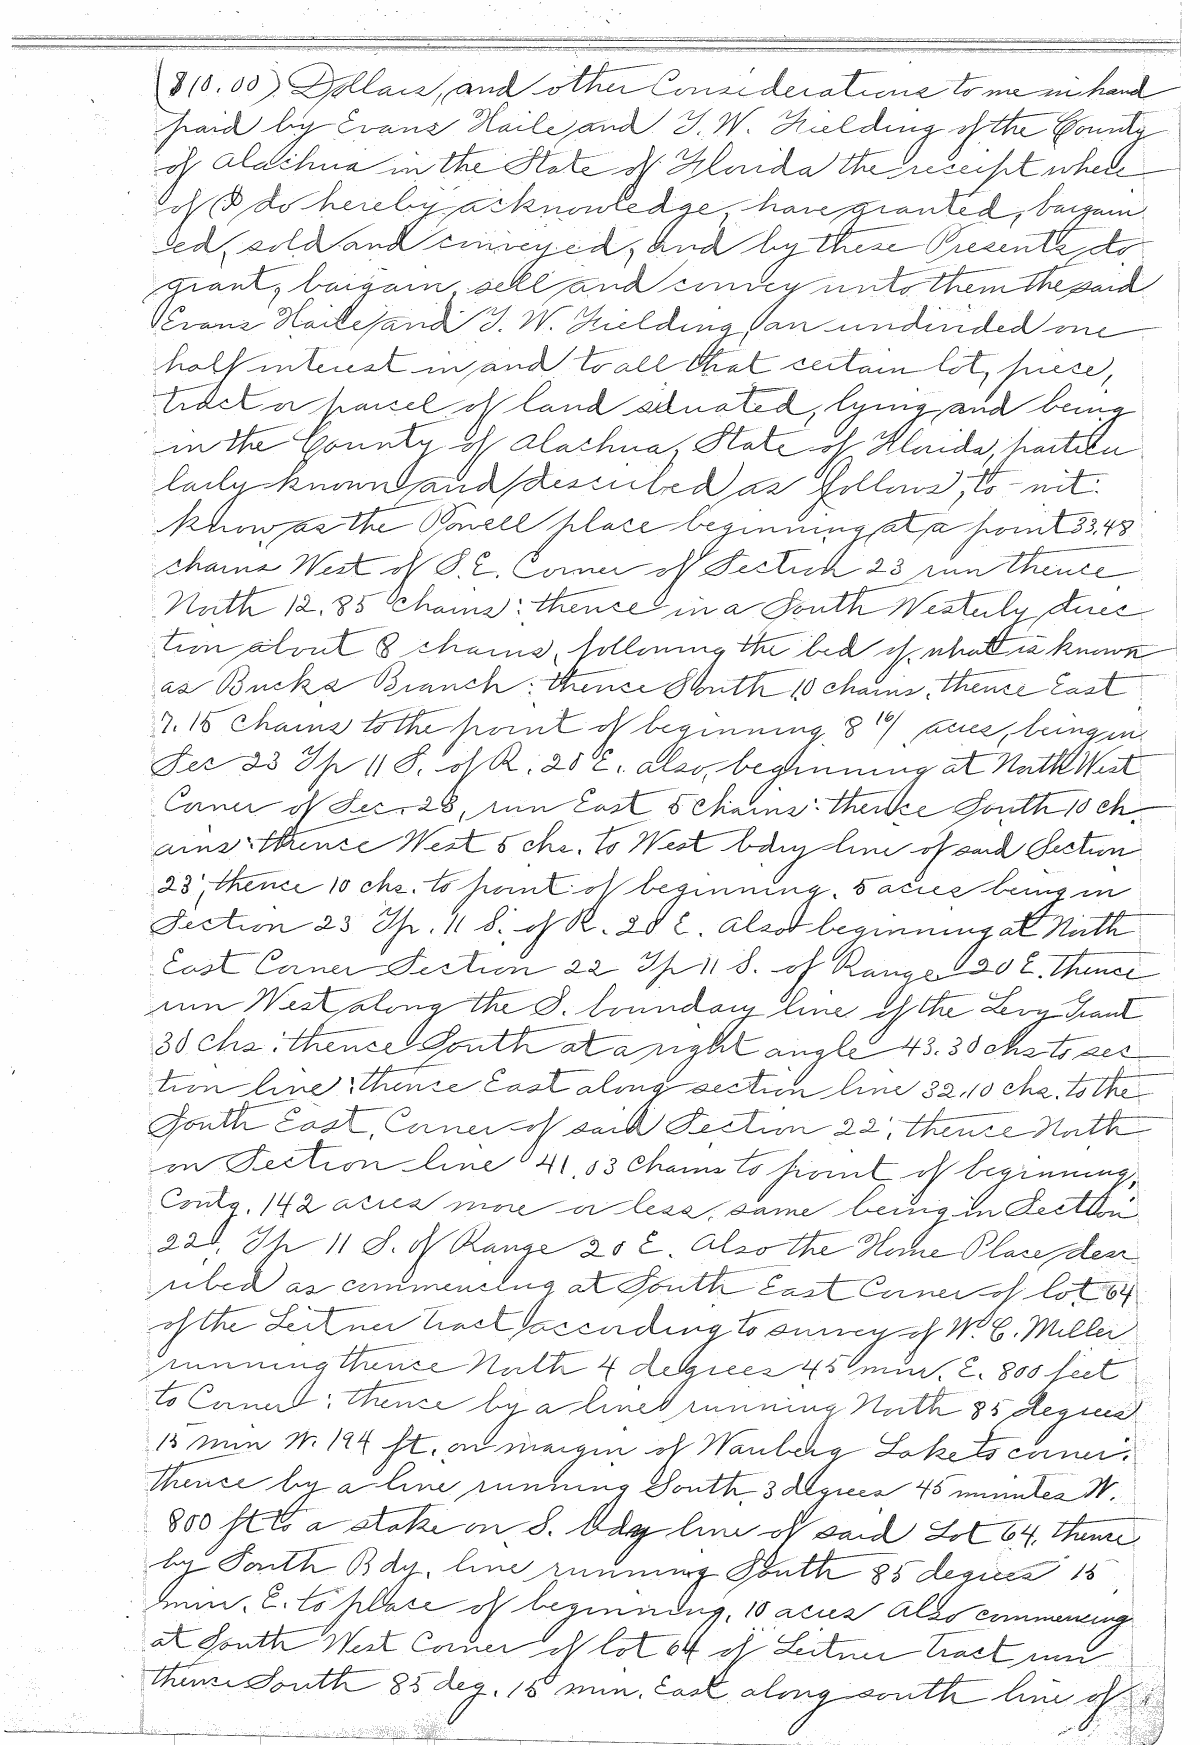 ($10.00) Dollars, and other Considerations to me in hand
paid by Evans Haile and T. W. Fielding of the County
of Alachua in the State of Florida the receipt where
of I do hereby acknowledge, have granted, bargain
ed, sold and conveyed, and by these Presents do
grant, bargain, sell and convey unto them the said
Evans Haile and T. W. Fielding, an undivided one
half interest in and to all that certain lot, piece,
tract or parcel of land situated, lying and being
in the County of Alachua, State of Florida, particu
larly known and described as follows, to-wit:
know as the Powell place beginning at a point 33.48
chains West of S.E. Corner of Section 23 run thence
North 12.85 Chains: thence in a South Westerly direc
tion about 8 chains, following the bed of what is known
as Bucks Branch: thence South 10 chains, thence East
7.15 Chains to the point of beginning 8 16/ acres, being in
Sec 23 Tp 11 S. of R. 20 E. also, beginning at North West
Corner of Sec. 23, run East 5 Chains: thence South 10 ch
ains: thence West 5 chs. to West bdry line of said Section
23; thence 10 chs. to point of beginning. 5 acres being in
Section 23 Tp. 11 S. of R. 20 E. Also beginning at North
East Corner Section 22 Tp 11 S. of Range 20 E. thence
run West along the S. boundary line of the Levy Grant
30 chs: thence South at a right angle 43.30 chs to sec
tion line: thence East along section line 32.10 chs. to the
South East, Corner of said Section 22; thence North
on Section line 41.03 Chains to point of beginning,
Contg. 142 acres more or less, same being in Section
22, Tp 11 S. of Range 20 E. Also the Home Place desc
ribed as commencing at South East Corner of lot 64
of the Leitner Tract, according to survey of W. C. Miller
running thence North 4 degrees 45 min. E. 800 feet
to Corner: thence by a line running North 85 degrees
15 min W. 194 ft. on margin of Wauberg Lake to corner:
thence by a line running South 3 degrees 45 minutes W.
800 ft to a stake on S. bdy line of said Lot 64, thence
by South Bdy. line running South 85 degrees 15
min. E. to place of beginning, 10 acres Also commencing
at South West Corner of lot 64 of Leitner Tract run
thence South 85 deg. 15 min. East along south line of